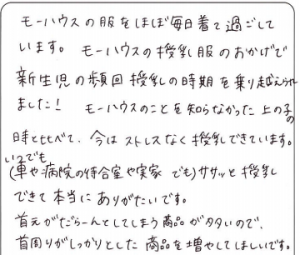 モーハウスの服をほぼ毎日着て過ごして
います。モーハウスの授乳服のおかげで
新生児の頻回授乳の時期を乗り越えられ
ました！ モーハウスのことを知らなかった上の子の
時と比べて、今はストレスなく授乳できています。
いつでも
(車や病院の待合室や実家でも)ササッと授乳
できて本当にありがたいです。
首元がだらーんとしてしまう商品が多いので、
首周りがしっかりとした商品を増やしてほしいです。